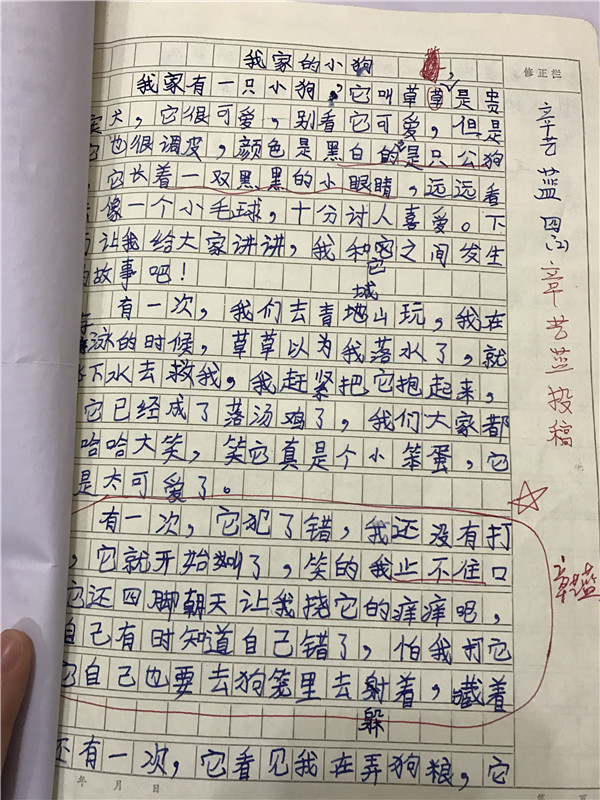 我家的小狗
修正栏
我家有一只小狗,它叫草草是贵
宾犬,它很可爱,别看它可爱,但是
它也很调皮,颜色是黑白的是只公狗
,它长着一双黑黑的小眼睛,远远看
像一个小毛球,十分讨人喜爱。下
面让我给大家讲讲,我和它之间发生
的故事吧!
它
城
有一次,我们去青地山玩,我在
游泳的时候,草草以为我落水了,就
下水去救我,我赶紧把它抱起来,
它已经成了落汤鸡了,我们大家都
哈哈大笑,笑它真是个小笨蛋,它
是太可爱了。
有一次,它犯了错,我还没有打
,它就开始叫了,笑的我止不住口
它还四脚朝天让我挠它的痒痒吧,
自己有时知道自己错了,怕我打它
它自己也要去狗笼里去射着,藏着
躲
还有一次,它看见我在弄狗粮,它
年 月 日
章艺蓝 四(2)
章艺蓝投稿
章艺蓝